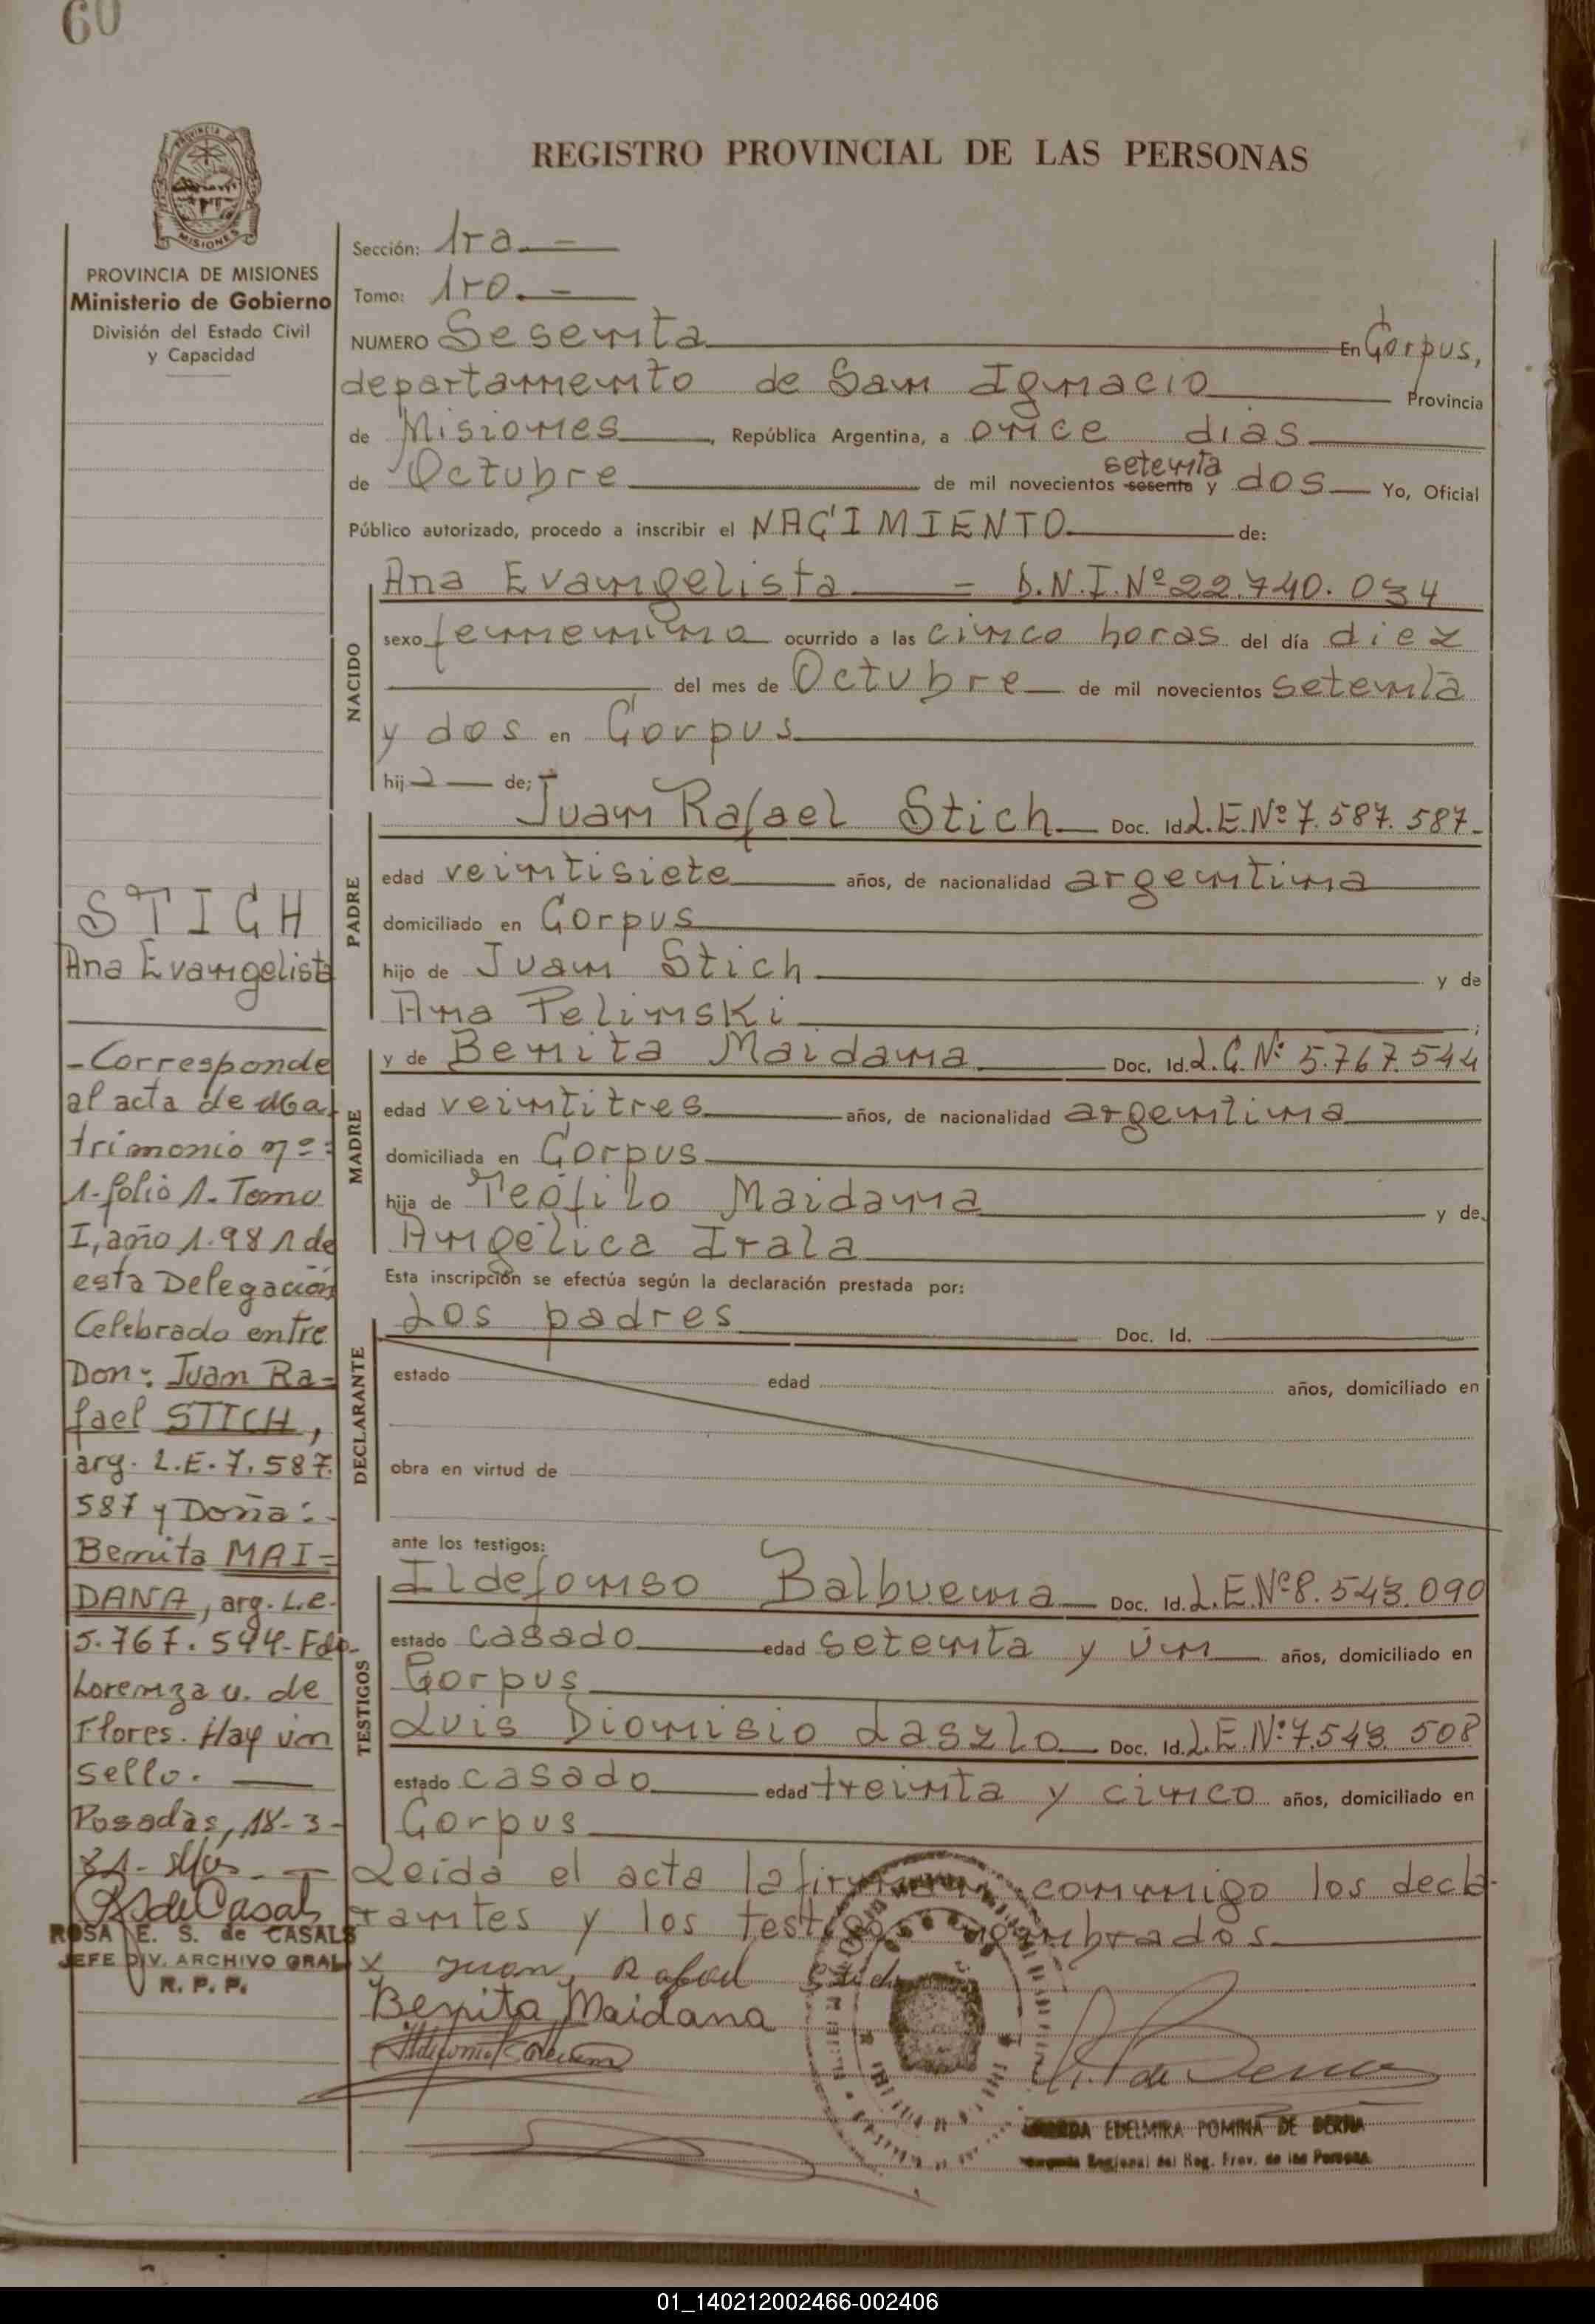 60
REGISTRO PROVINCIAL DE LAS PERSONAS
PROVINCIA DE MISIONES
Ministerio de Gobierno
División del Estado Civil
y Capacidad
Sección: 1ra.—
Tomo: 1ro.—
NUMERO Sesenta En Corpus,
departamento de San Ignacio Provincia
de Misiones, República Argentina, a once dias
de Octubre de mil novecientos sesenta setenta y dos Yo, Oficial
Público autorizado, procedo a inscribir el NACIMIENTO de:
NACIDO
Ana Evangelista — D.N.I.Nº 22.740.034
sexo femenino ocurrido a las cinco horas del día diez
del mes de Octubre de mil novecientos setenta
y dos en Corpus
hija de;
PADRE
Juan Rafael Stich Doc. Id. L.E.Nº 7.587.587-
edad veintisiete años, de nacionalidad argentina
domiciliado en Corpus
hijo de Juan Stich y de
Ana Pelinski ;
MADRE
y de Benita Maidana Doc. Id. L.C.Nº 5.767.544
edad veintitres años, de nacionalidad argentina
domiciliada en Corpus
hija de Teófilo Maidana y de
Angélica Irala
Esta inscripción se efectúa según la declaración prestada por:
DECLARANTE
Los padres Doc. Id.
estado edad años, domiciliado en
obra en virtud de
ante los testigos:
TESTIGOS
Ildefonso Balbuena Doc. Id. L.E.Nº 8.543.090
estado casado edad setenta y un años, domiciliado en
Corpus
Luis Dionisio Laszlo Doc. Id. L.E.Nº 7.543.508
estado casado edad treinta y cinco años, domiciliado en
Corpus
Leida el acta la firman conmigo los decla-
rantes y los testigos nombrados.
x Juan Rafael Stich
Benita Maidana
EDELMIRA POMINA DE
Regional del Reg. Prov. de las Personas
STICH
Ana Evangelista
- Corresponde
al acta de Ma-
trimonio nº:
1-folio 1. Tomo
I, año 1.981 de
esta Delegación
Celebrado entre
Don: Juan Ra-
fael STICH,
arg. L.E. 7.587.
587 y Doña:
Benita MAI-
DANA, arg. L.e.
5.767.544-Fdo-
Lorenza v. de
Flores. Hay un
sello.
Posadas, 18-3-
81-
R S de Casals
ROSA E. S. de CASALS
JEFE DIV. ARCHIVO GRAL
R. P. P.
01_140212002466-002406